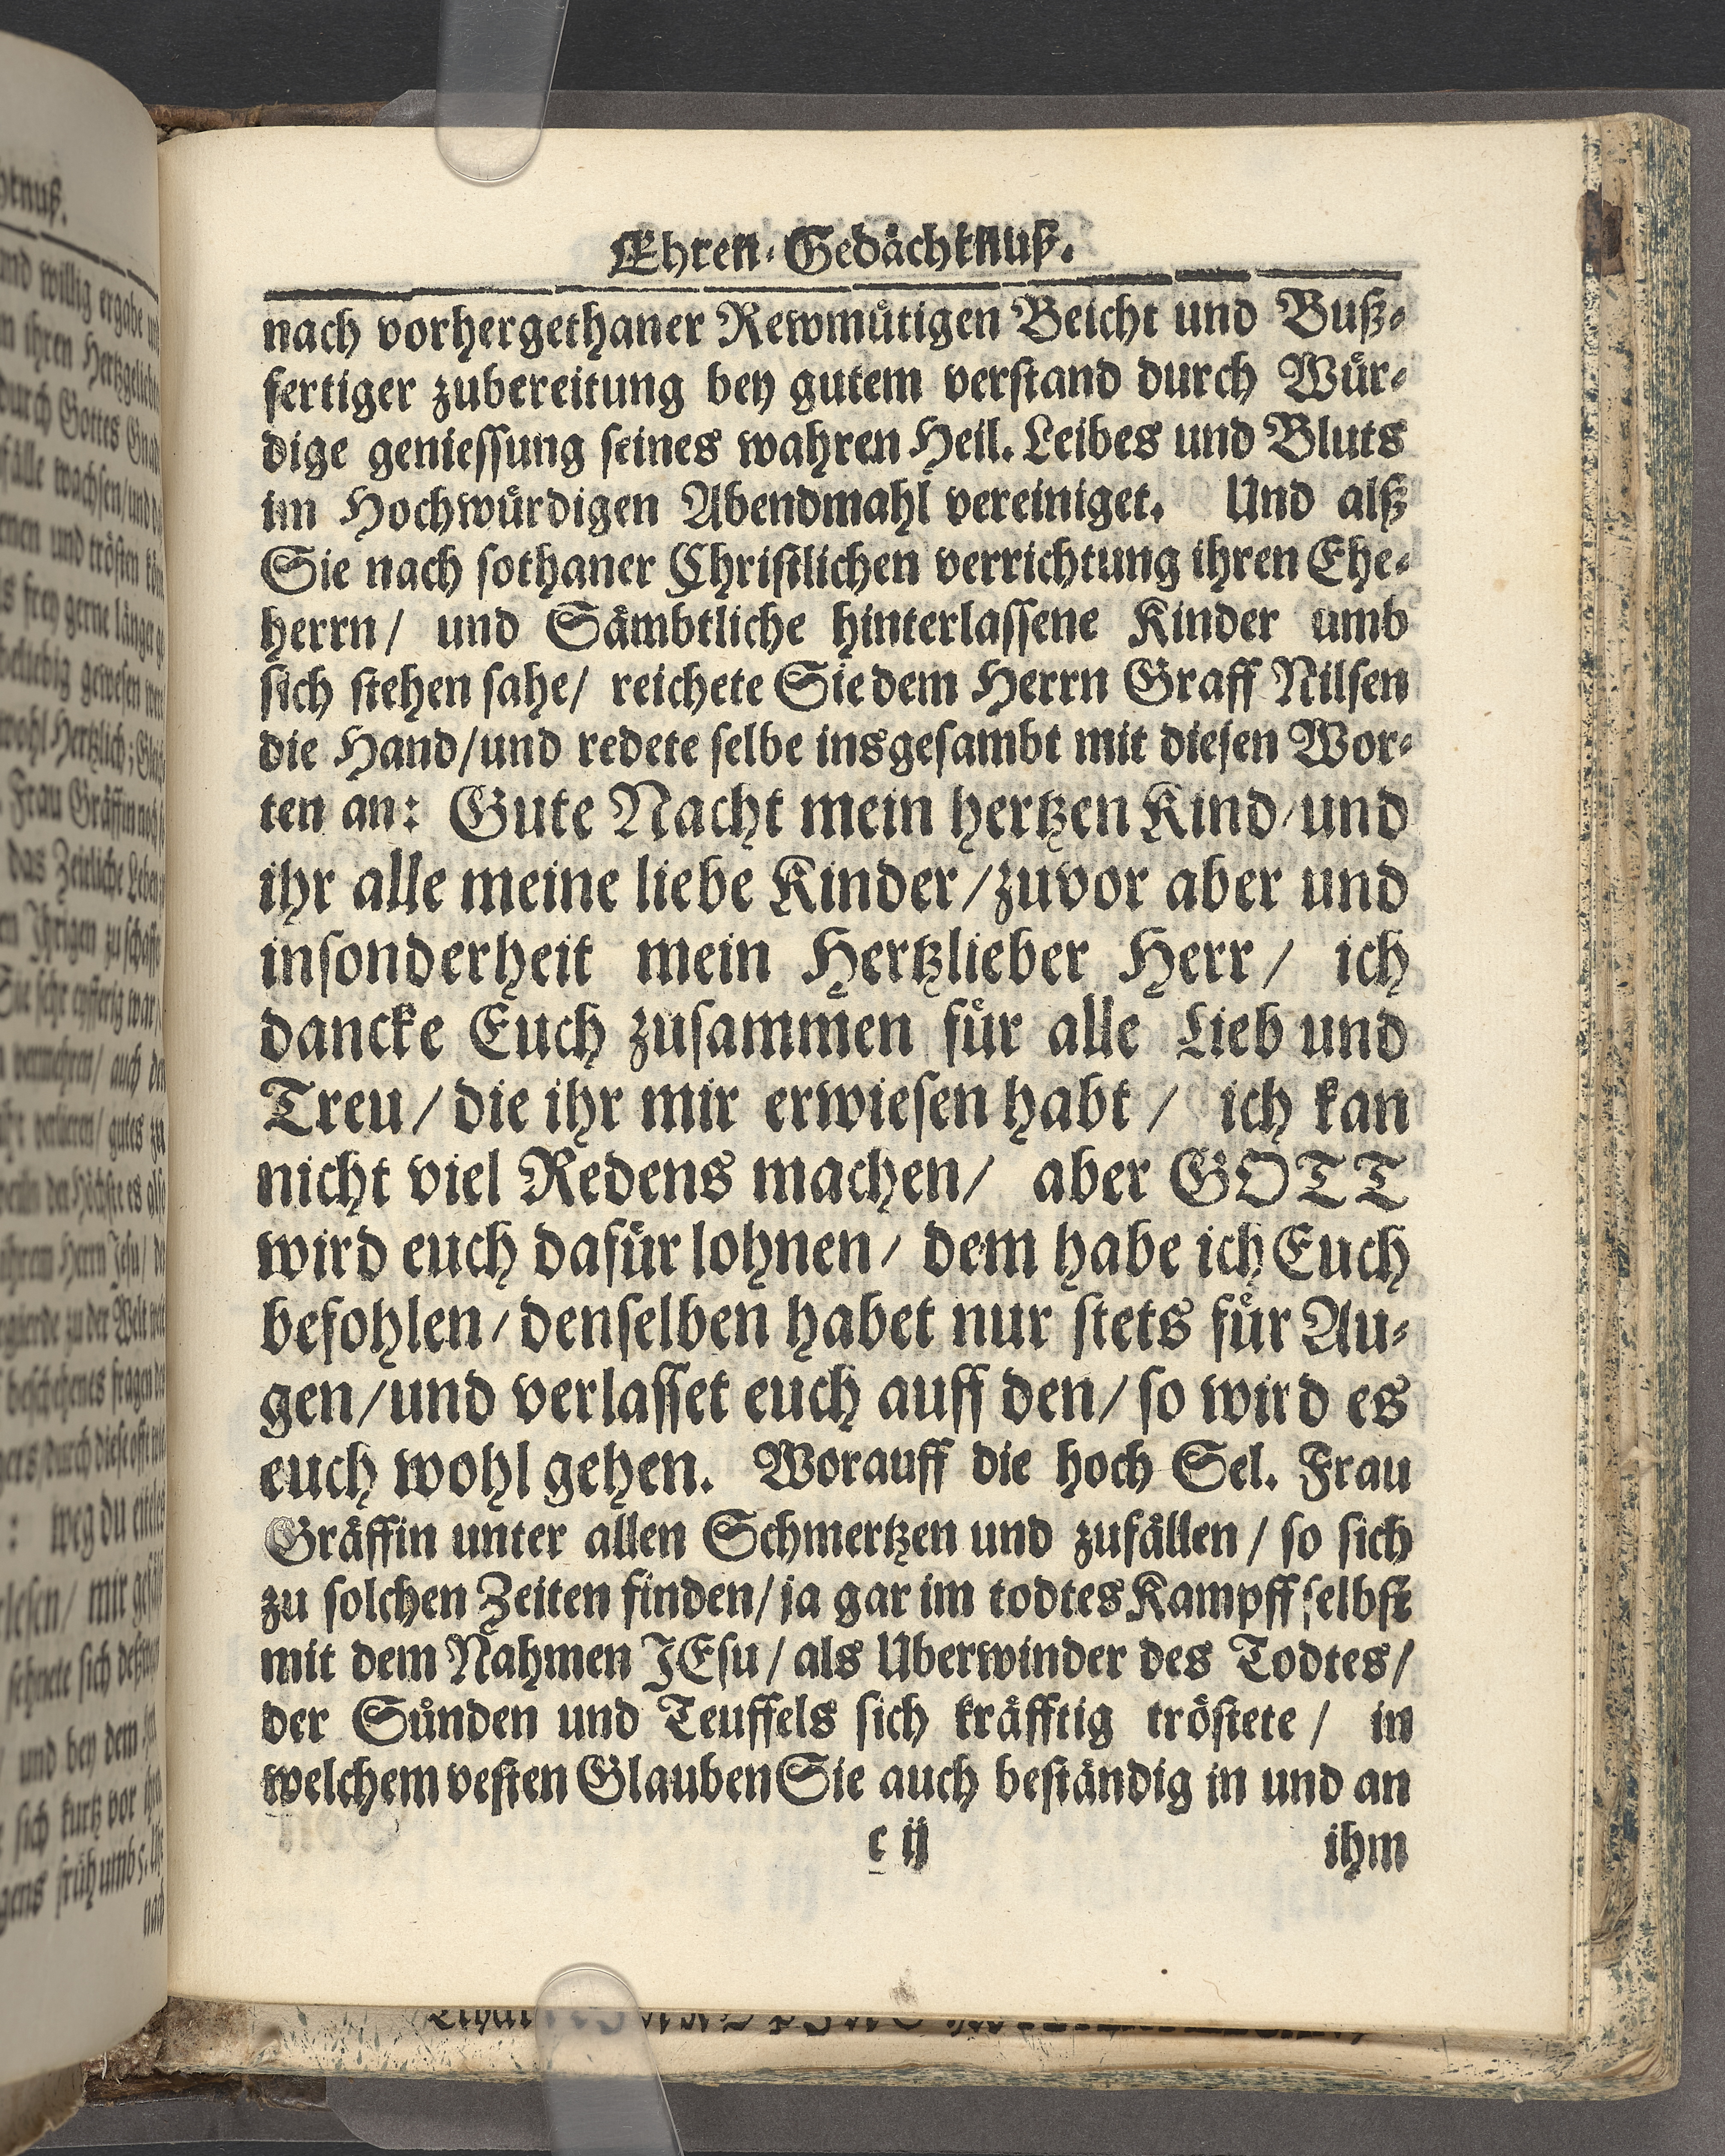 Ehren-Gedächtnuß.
nach vorhergethaner Rewmütigen Beicht und Buß-
fertiger zubereitung bey gutem verstand durch Wür-
dige geniessung seines wahren Heil. Leibes und Bluts
im Hochwürdigen Abendmahl vereiniget. Und alß
Sie nach sothaner Christlichen verrichtung ihren Ehe-
herrn/ und Sämbtliche hinterlassene Kinder umb
sich stehen sahe/ reichete Sie dem Herrn Graff Nilsen
die Hand/und redete selbe insgesambt mit diesen Wor-
ten an: Gute Nacht mein hertzen Kind/und
ihr alle meine liebe Kinder/zuvor aber und
insonderheit mein Hertzlieber Herr/ ich
dancke Euch zusammen für alle Lieb und
Treu/die ihr mir erwiesen habt/ ich kan
nicht viel Redens machen/ aber GOTT
wird euch dafür lohnen/ dem habe ich Euch
befohlen/denselben habet nur stets für Au-
gen/und verlasset euch auff den/so wird es
euch wohl gehen. Worauff die hoch Sel. Frau
Gräffin unter allen Schmertzen und zufällen/so sich
zu solchen Zeiten finden/ja gar im todtes Kampff selbst
mit dem Nahmen JEsu/als Uberwinder des Todtes/
der Sünden und Teuffels sich kräfftig tröstete/ in
welchem vesten Glauben Sie auch beständig in und an
c ij ihm